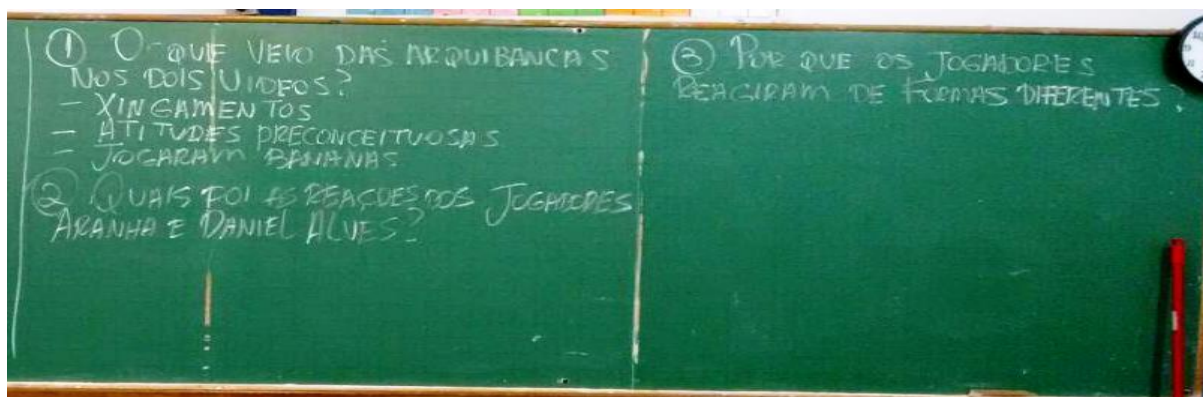 ① O QUE VEIO DAS ARQUIBANCAS
NOS DOIS VIDEOS?
- XINGAMENTOS
- ATITUDES PRECONCEITUOSAS
- JOGARAM BANANAS
② QUAIS FOI AS REAÇÕES DOS JOGADORES
ARANHA E DANIEL ALVES?
③ POR QUE OS JOGADORES
REAGIRAM DE FORMAS DIFERENTES?